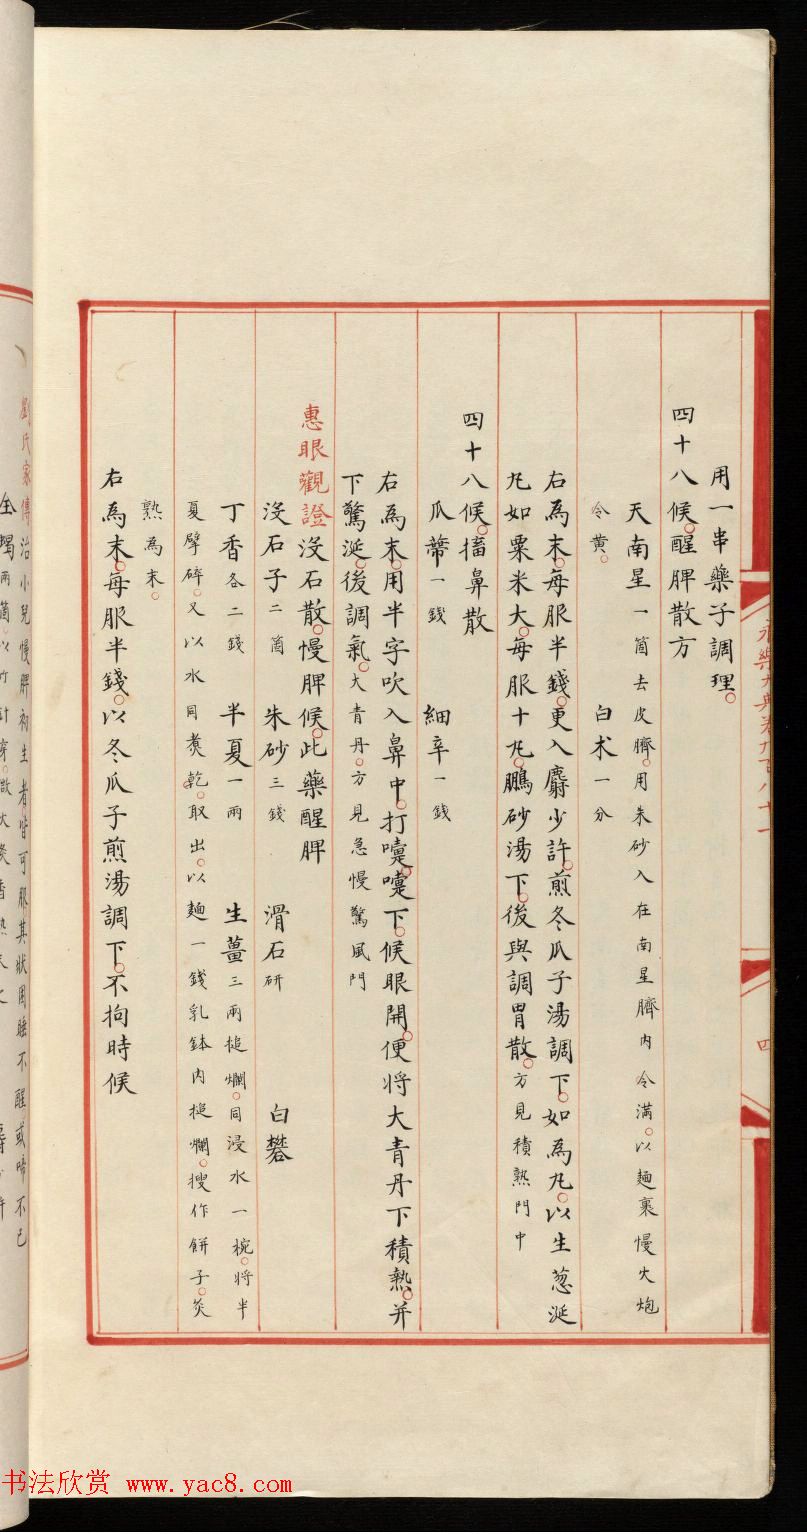 永樂大典卷九百八十一
四
用一串藥子調理。
四十八候。醒脾散方
天南星一箇去皮臍。用朱砂入在南星臍內令滿。以麵裹慢火炮
令黃。
白朮一分
右為末。每服半錢。更入麝少許。煎冬瓜子湯調下。如為丸。以生葱涎
丸如粟米大。每服十丸。鵬砂湯下。後與調胃散。方見積熱門中
四十八候。搐鼻散
瓜蔕一錢 細辛一錢
右為末。用半字吹入鼻中。打嚏。嚏下。候眼開。便將大青丹下積熱。并
下驚涎。後調氣。大青丹。方見急慢驚風門
惠眼觀證 沒石散。慢脾候。此藥醒脾
沒石子二箇 朱砂三錢 滑石研 白礬
丁香各二錢 半夏一兩 生薑三兩搥爛。同浸水一椀。將半
夏擘碎。又以水同煮乾。取出。以麵一錢乳鉢內搥爛。搜作餅子。炙
熟為末。
右為末。每服半錢。以冬瓜子煎湯調下。不拘時候
劉氏家傳治小兒慢脾初生者皆可服其狀困睡不醒或啼不已
全蝎兩箇
书法欣赏 www.yac8.com